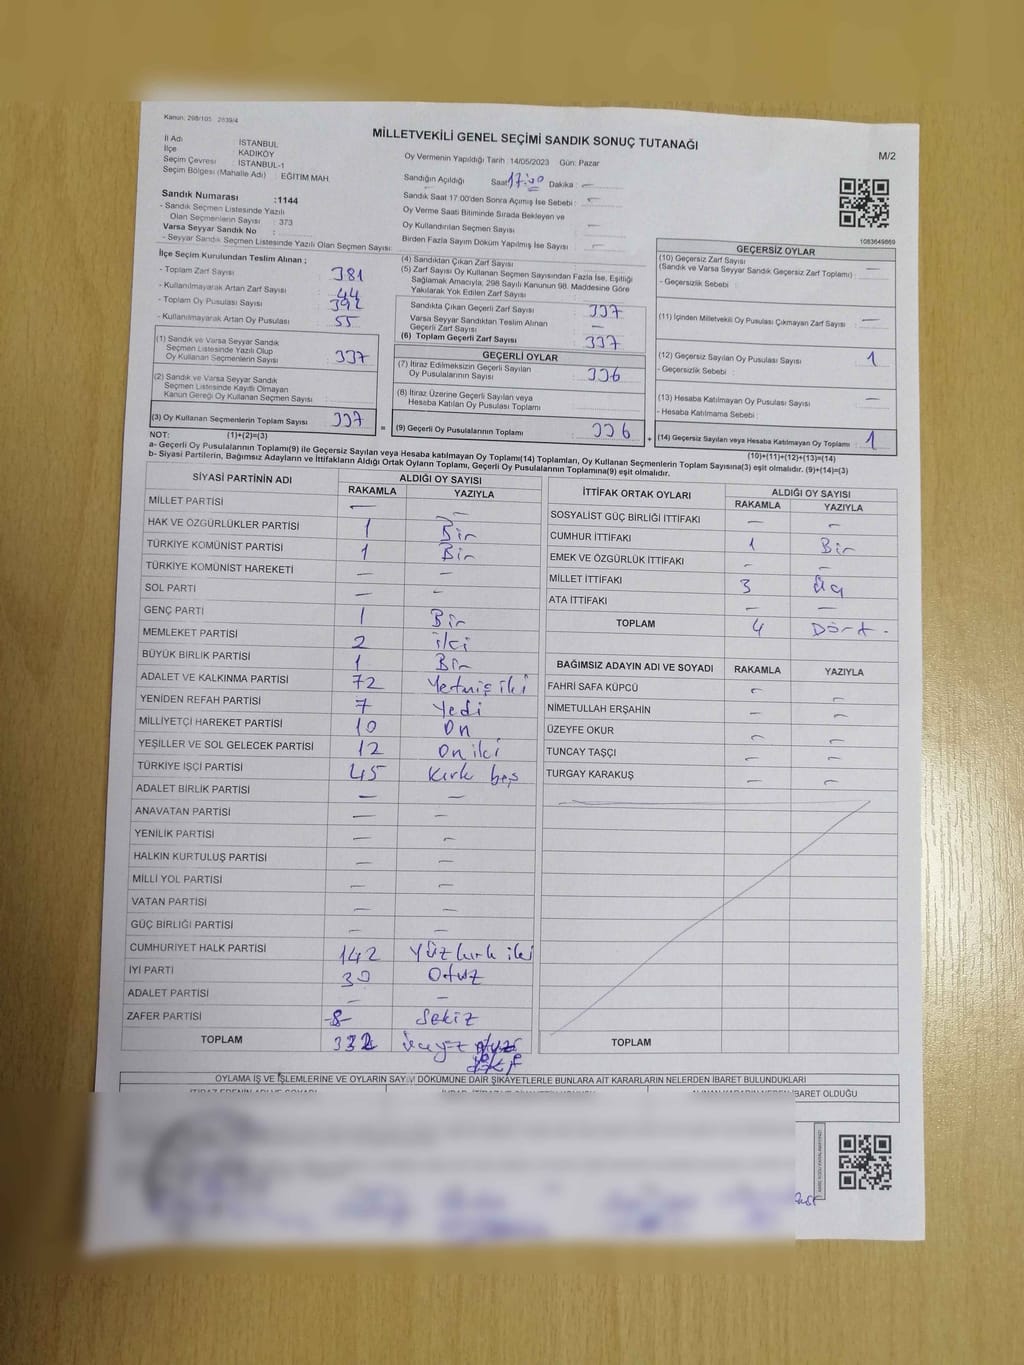 Kanun: 298/105 2839/4
MİLLETVEKİLİ GENEL SEÇİMİ SANDIK SONUÇ TUTANAĞI
M/2
İl Adı : İSTANBUL
İlçe : KADIKÖY
Seçim Çevresi : İSTANBUL-1
Seçim Bölgesi (Mahalle Adı) : EĞİTİM MAH.
Sandık Numarası :1144
- Sandık Seçmen Listesinde Yazılı
Olan Seçmenlerin Sayısı : 373
Varsa Seyyar Sandık No :
- Seyyar Sandık Seçmen Listesinde Yazılı Olan Seçmen Sayısı:
Oy Vermenin Yapıldığı Tarih :14/05/2023 Gün: Pazar
Sandığın Açıldığı Saat 17:00 Dakika : —
Sandık Saat 17:00'den Sonra Açılmış İse Sebebi : —
Oy Verme Saati Bitiminde Sırada Bekleyen ve
Oy Kullandırılan Seçmen Sayısı : —
Birden Fazla Sayım Döküm Yapılmış İse Sayısı : —
1083649869
İlçe Seçim Kurulundan Teslim Alınan ;
- Toplam Zarf Sayısı : 381
- Kullanılmayarak Artan Zarf Sayısı : 44
- Toplam Oy Pusulası Sayısı : 392
- Kullanılmayarak Artan Oy Pusulası : 55
(1) Sandık ve Varsa Seyyar Sandık
Seçmen Listesinde Yazılı Olup
Oy Kullanan Seçmenlerin Sayısı : 337
(2) Sandık ve Varsa Seyyar Sandık
Seçmen Listesinde Kayıtlı Olmayan
Kanun Gereği Oy Kullanan Seçmen Sayısı :
(3) Oy Kullanan Seçmenlerin Toplam Sayısı : 337
(4) Sandıktan Çıkan Zarf Sayısı
(5) Zarf Sayısı Oy Kullanan Seçmen Sayısından Fazla İse, Eşitliği
Sağlamak Amacıyla, 298 Sayılı Kanunun 98. Maddesine Göre
Yakılarak Yok Edilen Zarf Sayısı
Sandıkta Çıkan Geçerli Zarf Sayısı : 337
Varsa Seyyar Sandıktan Teslim Alınan
Geçerli Zarf Sayısı : —
(6) Toplam Geçerli Zarf Sayısı : 337
GEÇERLİ OYLAR
(7) İtiraz Edilmeksizin Geçerli Sayılan
Oy Pusulalarının Sayısı : 336
(8) İtiraz Üzerine Geçerli Sayılan veya
Hesaba Katılan Oy Pusulası Toplamı :
(9) Geçerli Oy Pusulalarının Toplamı : 336
GEÇERSİZ OYLAR
(10) Geçersiz Zarf Sayısı
(Sandık ve Varsa Seyyar Sandık Geçersiz Zarf Toplamı) : —
- Geçersizlik Sebebi :
(11) İçinden Milletvekili Oy Pusulası Çıkmayan Zarf Sayısı : —
(12) Geçersiz Sayılan Oy Pusulası Sayısı : 1
- Geçersizlik Sebebi :
(13) Hesaba Katılmayan Oy Pusulası Sayısı : —
- Hesaba Katılmama Sebebi :
(14) Geçersiz Sayılan veya Hesaba Katılmayan Oy Toplamı : 1
NOT: (1)+(2)=(3)
(10)+(11)+(12)+(13)=(14)
a- Geçerli Oy Pusulalarının Toplamı(9) ile Geçersiz Sayılan veya Hesaba katılmayan Oy Toplamı(14) Toplamları, Oy Kullanan Seçmenlerin Toplam Sayısına(3) eşit olmalıdır. (9)+(14)=(3)
b- Siyasi Partilerin, Bağımsız Adayların ve İttifakların Aldığı Ortak Oyların Toplamı, Geçerli Oy Pusulalarının Toplamına(9) eşit olmalıdır.
SİYASİ PARTİNİN ADI ALDIĞI OY SAYISI
RAKAMLA YAZIYLA
MİLLET PARTİSİ — —
HAK VE ÖZGÜRLÜKLER PARTİSİ 1 Bir
TÜRKİYE KOMÜNİST PARTİSİ 1 Bir
TÜRKİYE KOMÜNİST HAREKETİ — —
SOL PARTİ — —
GENÇ PARTİ 1 Bir
MEMLEKET PARTİSİ 2 iki
BÜYÜK BİRLİK PARTİSİ 1 Bir
ADALET VE KALKINMA PARTİSİ 72 Yetmiş iki
YENİDEN REFAH PARTİSİ 7 Yedi
MİLLİYETÇİ HAREKET PARTİSİ 10 On
YEŞİLLER VE SOL GELECEK PARTİSİ 12 On iki
TÜRKİYE İŞÇİ PARTİSİ 45 Kırk beş
ADALET BİRLİK PARTİSİ — —
ANAVATAN PARTİSİ — —
YENİLİK PARTİSİ — —
HALKIN KURTULUŞ PARTİSİ — —
MİLLİ YOL PARTİSİ — —
VATAN PARTİSİ — —
GÜÇ BİRLİĞİ PARTİSİ — —
CUMHURİYET HALK PARTİSİ 142 Yüz kırk iki
İYİ PARTİ 30 Otuz
ADALET PARTİSİ — —
ZAFER PARTİSİ -8- Sekiz
TOPLAM 332
İTTİFAK ORTAK OYLARI ALDIĞI OY SAYISI
RAKAMLA YAZIYLA
SOSYALİST GÜÇ BİRLİĞİ İTTİFAKI — —
CUMHUR İTTİFAKI 1 Bir
EMEK VE ÖZGÜRLÜK İTTİFAKI — —
MİLLET İTTİFAKI 3 Üç
ATA İTTİFAKI — —
TOPLAM 4 Dört -
BAĞIMSIZ ADAYIN ADI VE SOYADI RAKAMLA YAZIYLA
FAHRİ SAFA KÜPCÜ — —
NİMETULLAH ERŞAHİN — —
ÜZEYFE OKUR — —
TUNCAY TAŞÇI — —
TURGAY KARAKUŞ — —
TOPLAM
OYLAMA İŞ VE İŞLEMLERİNE VE OYLARIN SAYIM DÖKÜMÜNE DAİR ŞİKAYETLERLE BUNLARA AİT KARARLARIN NELERDEN İBARET BULUNDUKLARI